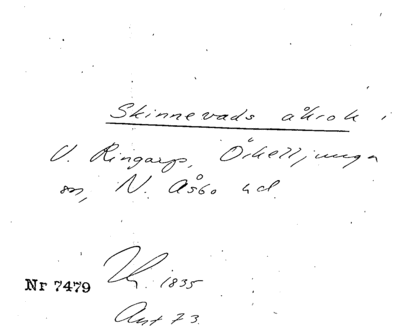 Skinnevads åkrok i
V. Ringarp, Örkelljunga
sn, N. Åsbo hd.
Nr 7479
1835
Avt 73